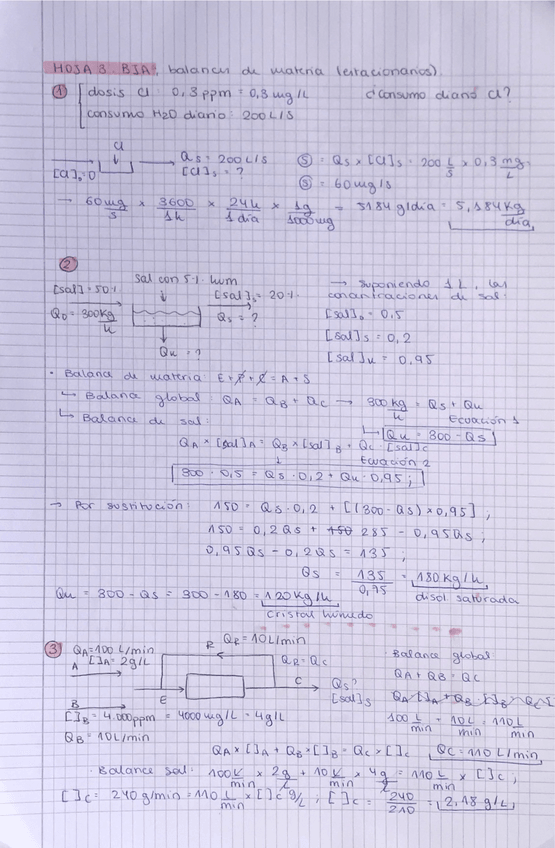 HOJA 3. BIA, balances de materia (estacionarios).
① dosis Cl: 0,3 ppm = 0,3 mg/L ¿Consumo diario Cl?
consumo H2O diario: 200 L/S
Cl
[Cl]₀=0 → Qs = 200 L/S Ⓢ = Qs × [Cl]s = 200 L/S × 0,3 mg/L
[Cl]s = ? Ⓢ = 60 mg/s
→ 60 mg/s × 3600/1h × 24h/1 día × 1g/1000mg = 5184 g/día = 5,184 Kg/día
②
Sal con 5% hum → Suponiendo 1L, las
[sal]=50% [sal]s = 20% concentraciones de sal:
Q₀ = 300 Kg/h Qs = ? [sal]₀ = 0,5
[sal]s = 0,2
Qu = ? [sal]u = 0,95
• Balance de materia: E + P + C = A + S
↳ Balance global: QA = QB + QC → 300 Kg/h = Qs + Qu
Ecuación 1
↳ Balance de sal: ↳ Qu = 300 - Qs
QA × [sal]A = QB × [sal]B + QC · [sal]C
↓ Ecuación 2
300 · 0,5 = Qs · 0,2 + Qu · 0,95;
→ Por sustitución: 150 = Qs · 0,2 + [(300 - Qs) × 0,95];
150 = 0,2 Qs + 285 - 0,95 Qs;
0,95 Qs - 0,2 Qs = 135;
Qs = 135/0,75 = 180 Kg/h
disol saturada
Qu = 300 - Qs = 300 - 180 = 120 Kg/h
Cristal húmedo
③ QA = 100 L/min R QR = 10 L/min · Balance global
A [ ]A = 2g/L QR = QC QA + QB = QC
B E C Qs? QA [ ]A + QB [ ]B = QC [ ]
[ ]s
[ ]B = 4.000 ppm = 4000 mg/L = 4g/L 100 L/min + 10 L/min = 110 L/min
QB = 10 L/min
QA × [ ]A + QB × [ ]B = QC × [ ]C QC = 110 L/min
· Balance sal: 100 L/min × 2g/L + 10 L/min × 4g/L = 110 L/min × [ ]C;
[ ]C = 240 g/min = 110 L/min × [ ]C g/L; [ ]C = 240/210 = 2,18 g/L